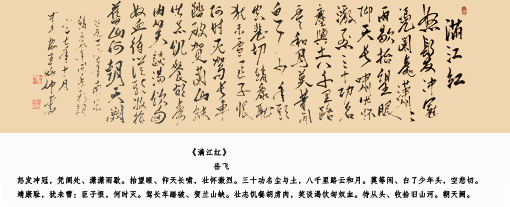 满江红
怒发冲冠
凭阑处潇潇
雨歇抬望眼
仰天长啸壮怀
激烈三十功名
尘与土八千里路
云和月莫等闲
白了少年头
空悲切靖康耻
犹未雪臣子恨
何时灭驾长车
踏破贺兰山缺
壮志饥餐胡虏
肉笑谈渴饮匈
奴血待从头收拾
旧山河朝天阙
《满江红》
岳飞
怒发冲冠，凭阑处、潇潇雨歇。抬望眼、仰天长啸，壮怀激烈。三十功名尘与土，八千里路云和月。莫等闲、白了少年头，空悲切。
靖康耻，犹未雪；臣子恨，何时灭。驾长车踏破、贺兰山缺。壮志饥餐胡虏肉，笑谈渴饮匈奴血。待从头、收拾旧山河。朝天阙。